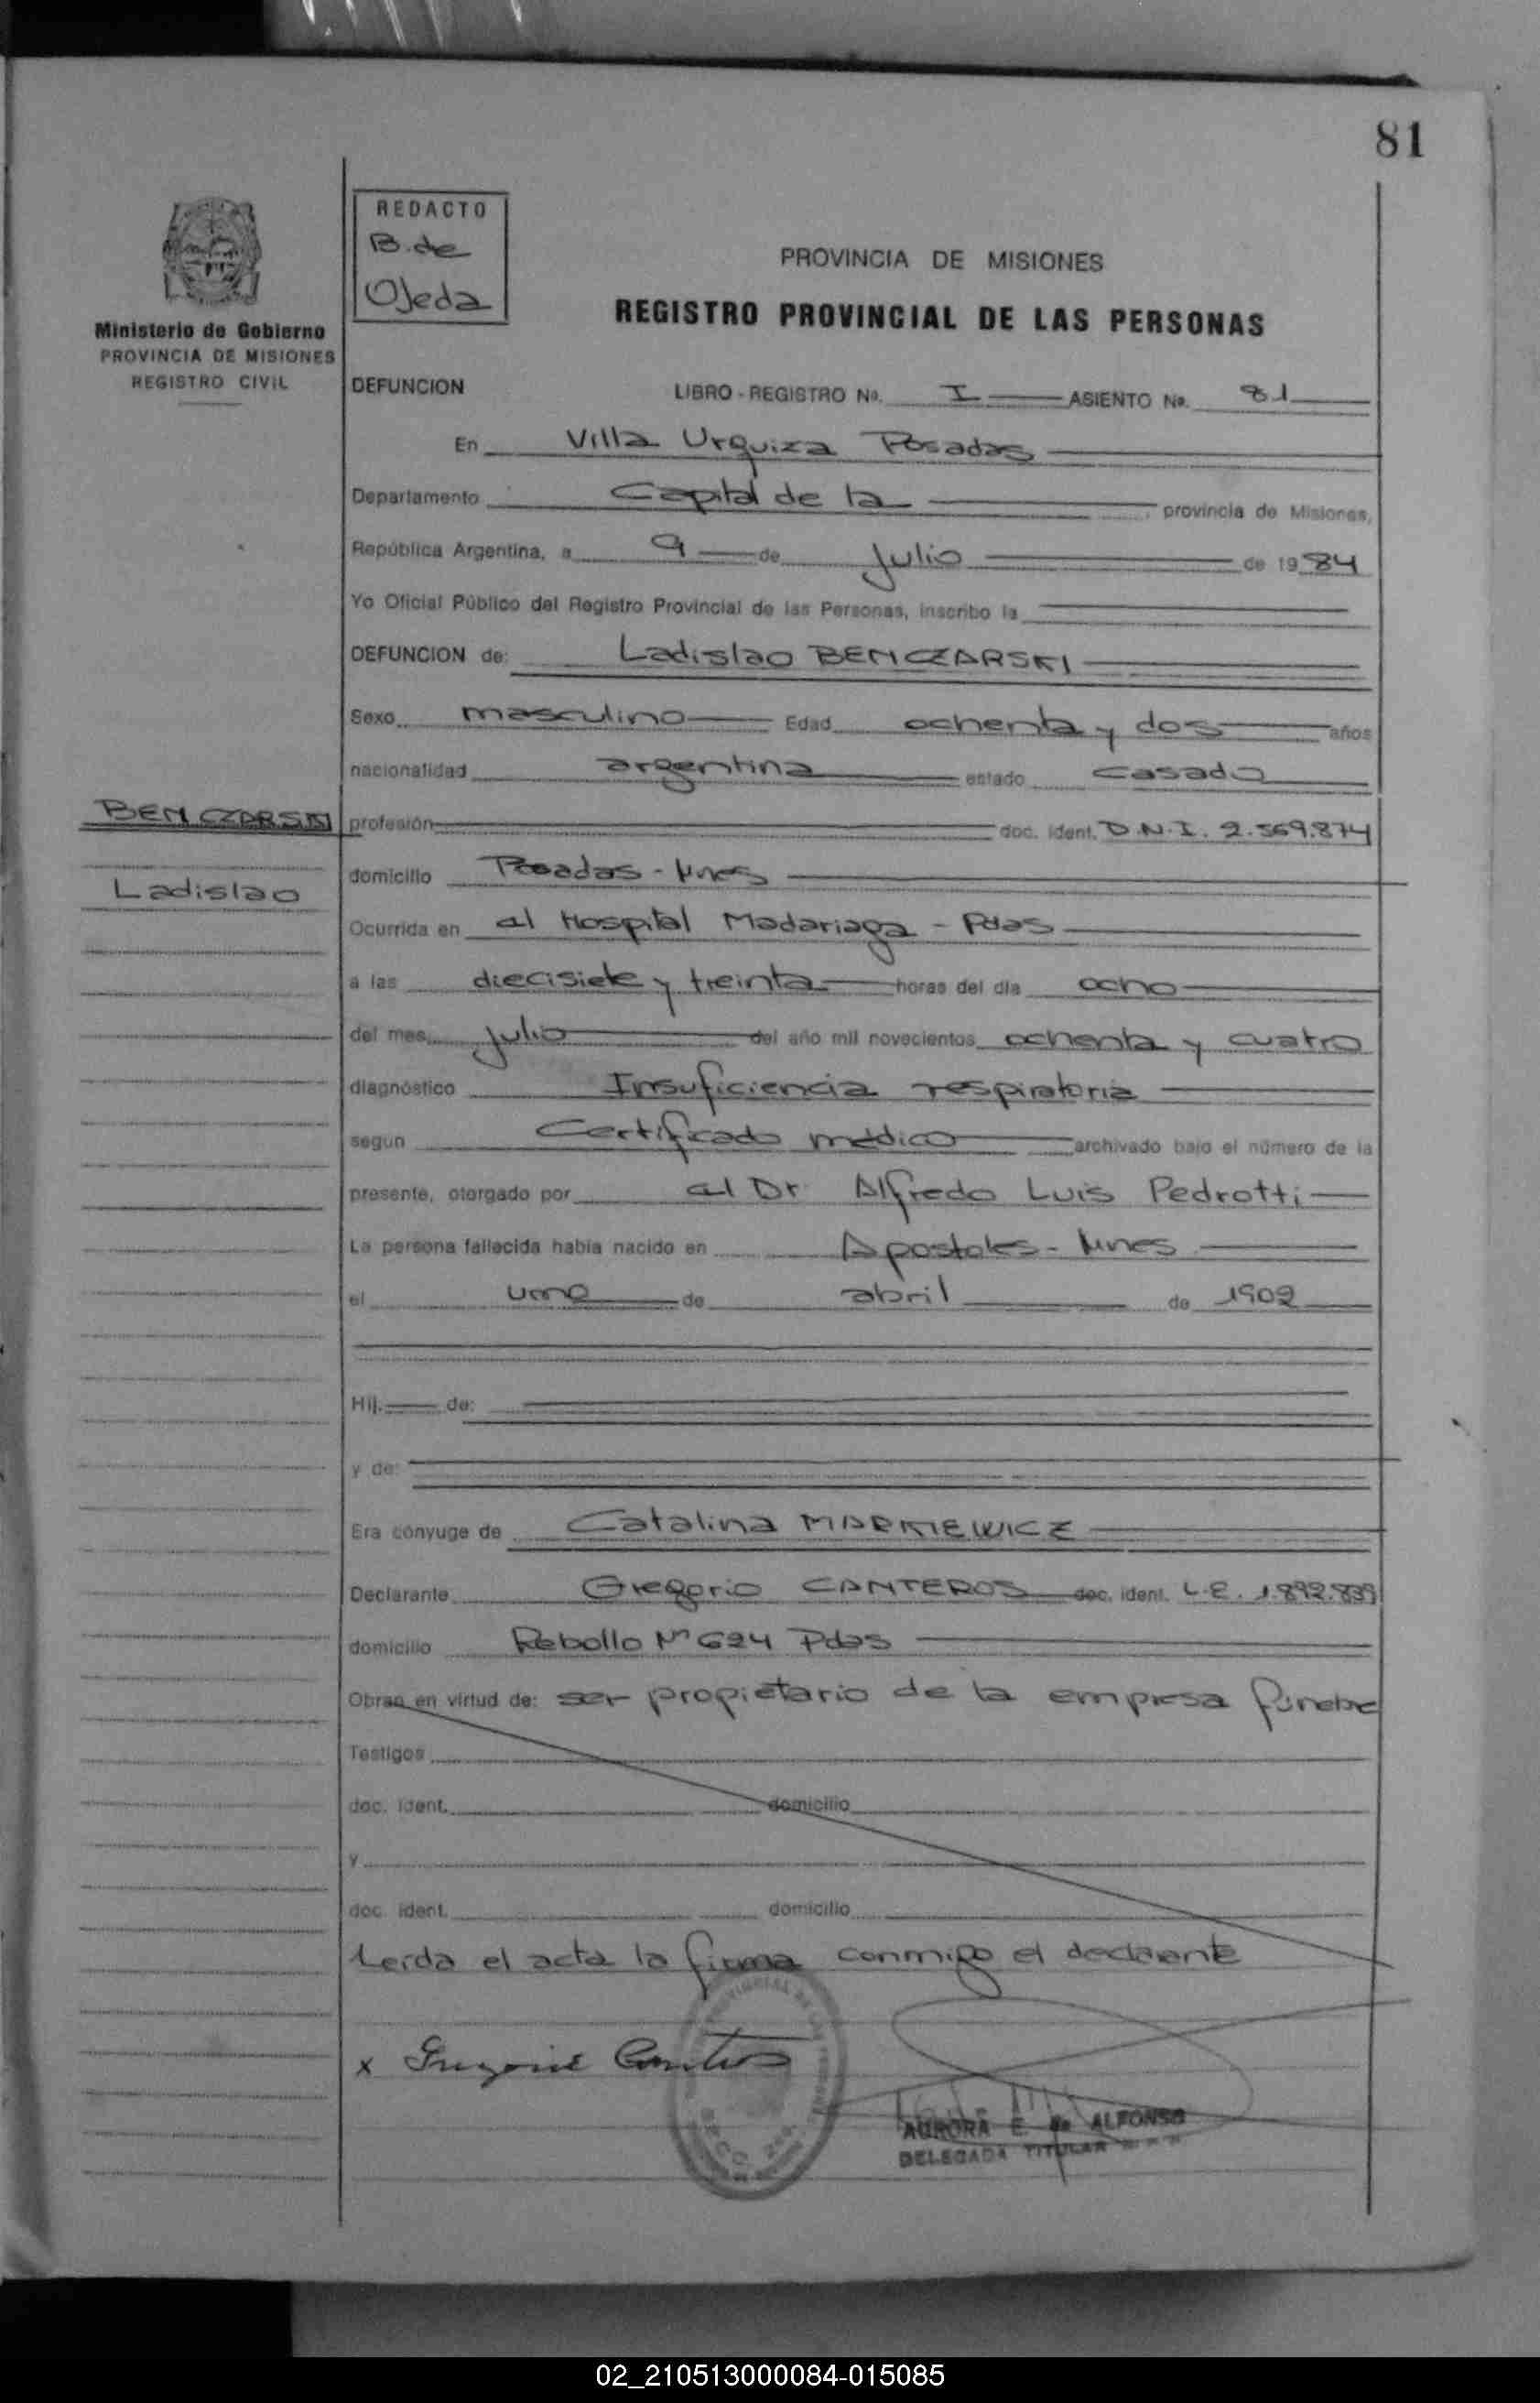 81
REDACTO
B. de
Ojeda
Ministerio de Gobierno
PROVINCIA DE MISIONES
REGISTRO CIVIL
PROVINCIA DE MISIONES
REGISTRO PROVINCIAL DE LAS PERSONAS
DEFUNCION LIBRO - REGISTRO No. I ASIENTO No. 81
En Villa Urquiza Posadas
Departamento Capital de la provincia de Misiones,
República Argentina, a 9 de Julio de 1984
Yo Oficial Público del Registro Provincial de las Personas, inscribo la
DEFUNCION de: Ladislao BENCZARSKI
Sexo masculino Edad ochenta y dos años
nacionalidad argentina estado casado
BENCZARSKI
Ladislao
profesión doc. ident. D.N.I. 2.569.874
domicilio Posadas - Mnes
Ocurrida en el Hospital Madariaga - Pdas
a las diecisiete y treinta horas del día ocho
del mes julio del año mil novecientos ochenta y cuatro
diagnóstico Insuficiencia respiratoria
segun Certificado médico archivado bajo el número de la
presente, otorgado por el Dr Alfredo Luis Pedrotti
La persona fallecida había nacido en Apostoles - Mnes
el uno de abril de 1902
Hij. de:
y de:
Era cónyuge de Catalina MARKIEWICZ
Declarante Gregorio CANTEROS doc. ident. L.E. 1.892.839
domicilio Rebollo Nº 624 Pdas
Obran en virtud de: ser propietario de la empresa fúnebre
Testigos
doc. ident. domicilio
y
doc. ident. domicilio
Leída el acta la firma conmigo el declarante
x Gregorio Canteros
AURORA E. de ALFONSO
DELEGADA TITULAR
02_210513000084-015085